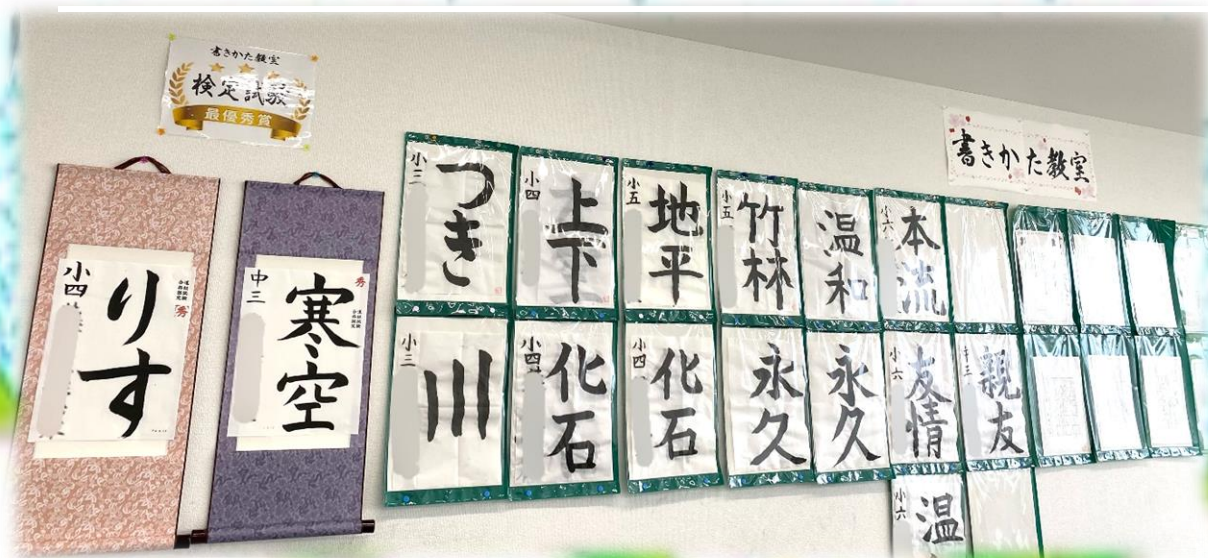 書きかた教室
検定試験
最優秀賞
書きかた教室
小四
りす
秀
中三
寒空
秀
小三
つき
小四
上下
小五
地平
小五
竹林
温和
小六
本流
小三
川
小四
化石
小四
化石
永久
永久
小六
友情
中三
親友
小六
温